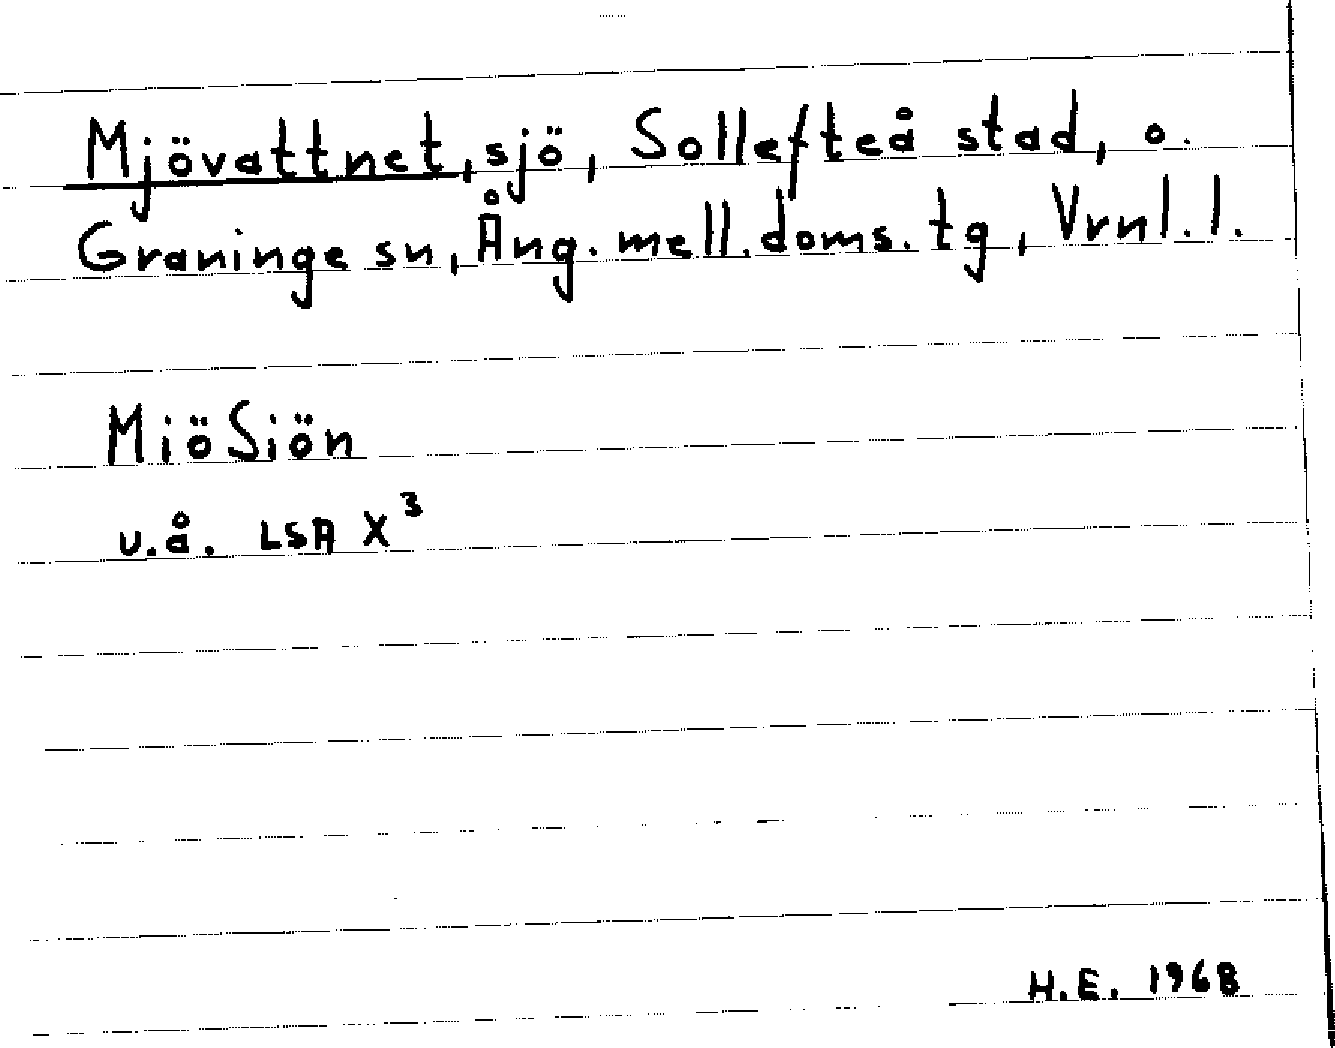 Mjövattnet, sjö, Sollefteå stad, o.
Graninge sn, Ång. mell. doms. tg, Vrnl. l.
MiöSiön
u.å. LSA X³
H.E. 1968